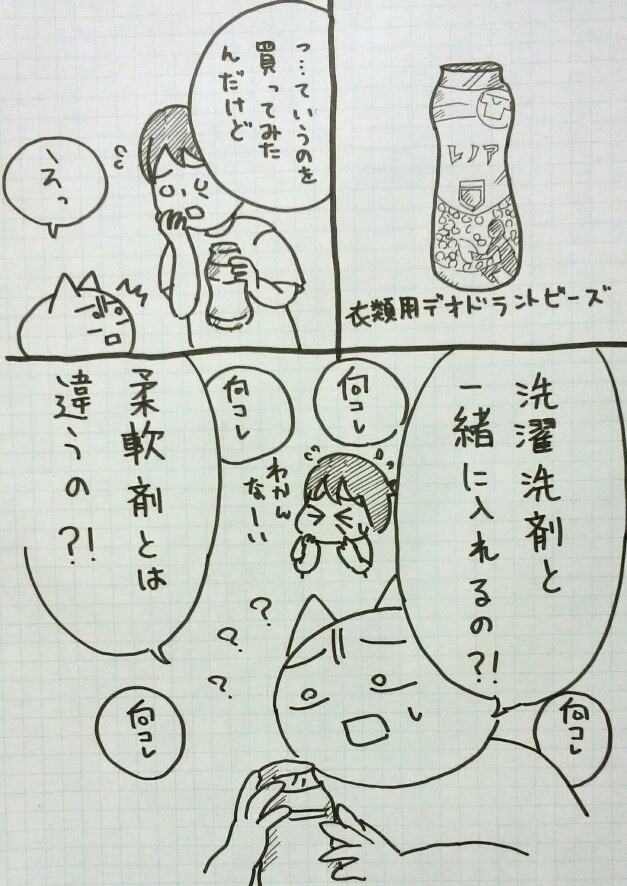 レノア
衣類用デオドラントビーズ
っ…ていうのを
買ってみた
んだけど
えっ
洗濯洗剤と
一緒に入れるの?!
何コレ
わかん
なーい
何コレ
柔軟剤とは
違うの?!
何コレ
何コレ